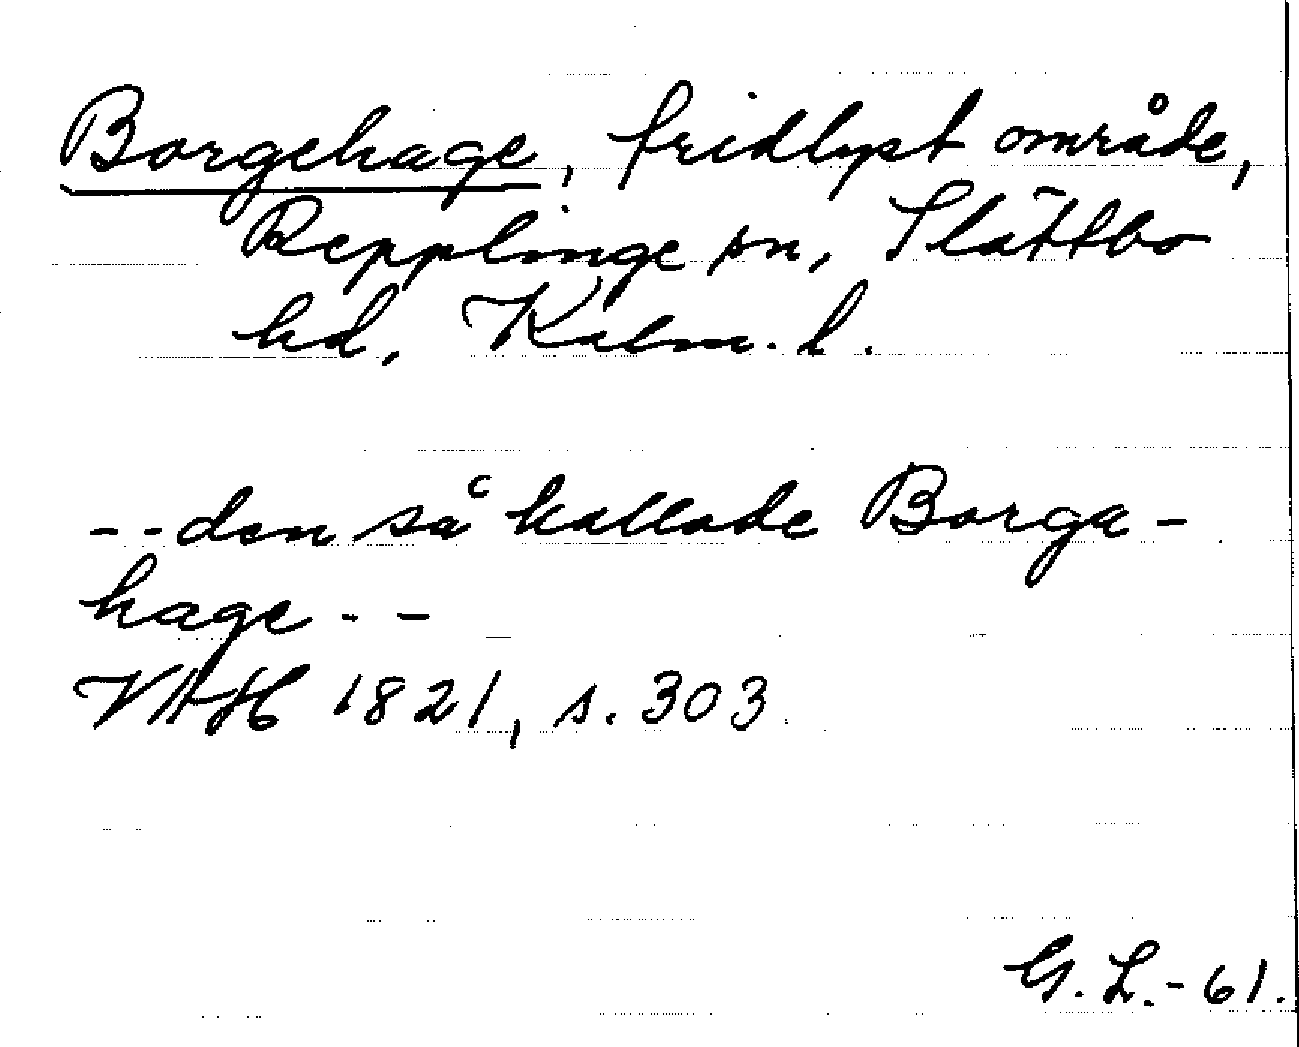 Borgehage, fridlyst område,
Repplinge sn, Slättbo
hd, Kalm. l.
--den så kallade Borga-
hage--
VAH 1821, s. 303.
G. L.-61.